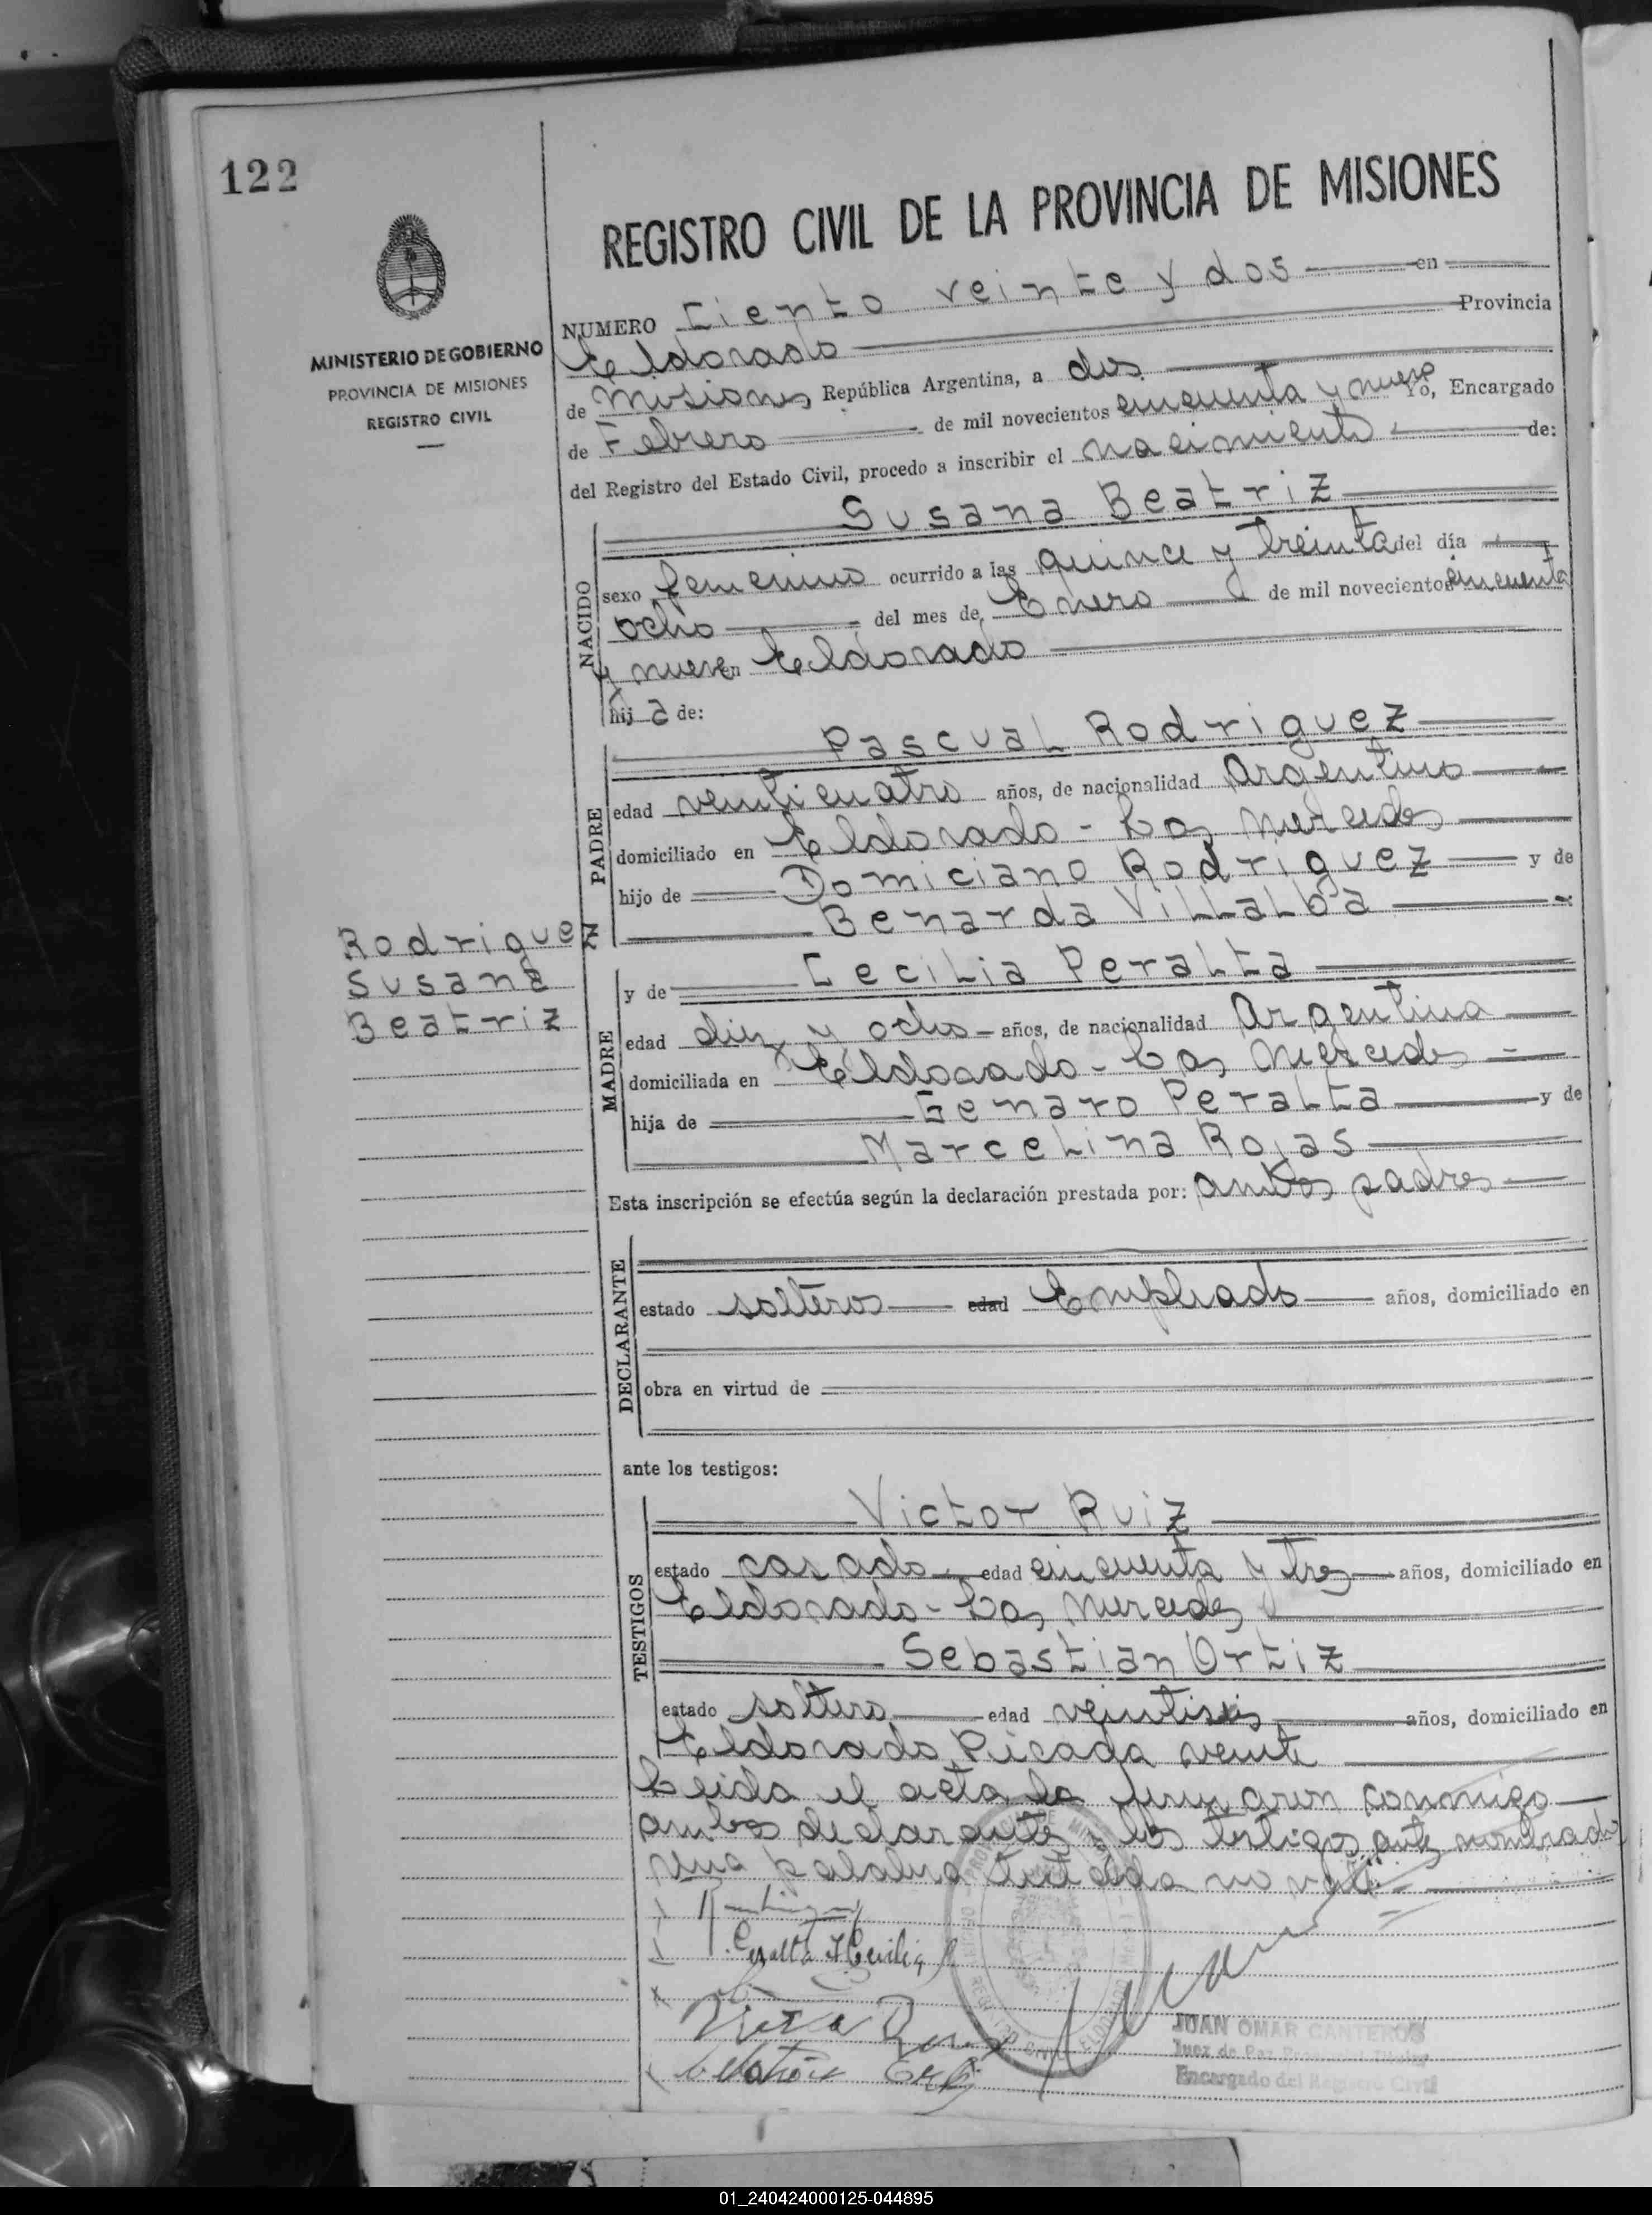 122
REGISTRO CIVIL DE LA PROVINCIA DE MISIONES
MINISTERIO DE GOBIERNO
PROVINCIA DE MISIONES
REGISTRO CIVIL
NUMERO Ciento veinte y dos en
Eldorado Provincia
de Misiones República Argentina, a dos
de Febrero de mil novecientos cincuenta y nueve Yo, Encargado
del Registro del Estado Civil, procedo a inscribir el nacimiento de:
NACIDO
Susana Beatriz
sexo femenino ocurrido a las quince y treinta del día
ocho del mes de Enero de mil novecientos cincuenta
y nueve en Eldorado
hij a de:
PADRE
Pascual Rodriguez
edad venticuatro años, de nacionalidad Argentino
domiciliado en Eldorado - Las Mercedes
hijo de Domiciano Rodriguez y de
Benarda Villalba
Rodriguez
Susana
Beatriz
MADRE
y de Cecilia Peralta
edad diez y ocho años, de nacionalidad Argentina
domiciliada en Eldorado - Las Mercedes
hija de Genaro Peralta y de
Marcelina Rojas
Esta inscripción se efectúa según la declaración prestada por: ambos padres
DECLARANTE
estado solteros edad Empleado años, domiciliado en
obra en virtud de
ante los testigos:
TESTIGOS
Victor Ruiz
estado casado edad cincuenta y tres años, domiciliado en
Eldorado - Las Mercedes
Sebastian Ortiz
estado soltero edad veintiseis años, domiciliado en
Eldorado Picada veinte
Leida el acta la firmaron conmigo
ambos declarantes y los testigos ante nombrados
una palabra testada no vale
Peralta Cecilia
JUAN OMAR CANTEROS
Juez de Paz Provincial Titular
Encargado del Registro Civil
01_240424000125-044895